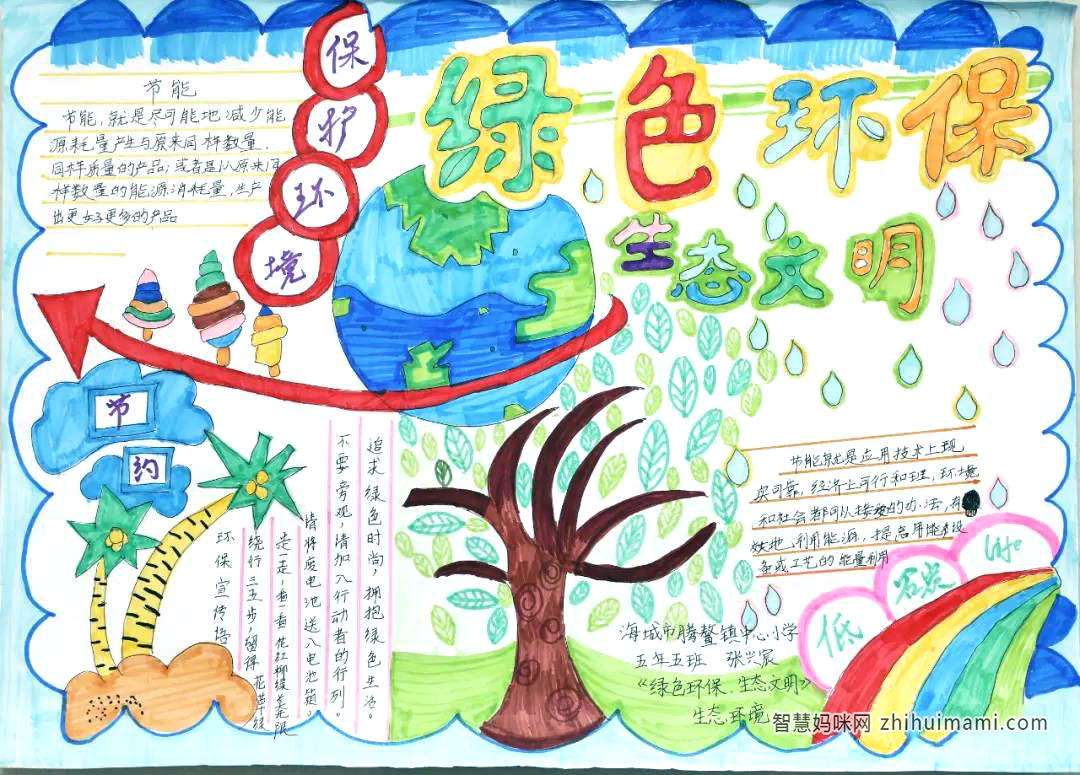 绿色环保
生态文明
保护环境
节能
节能,就是尽可能地减少能
源耗量产生与原来同样数量、
同样质量的产品;或者是以原来同
样数量的能源消耗量,生产
出更好更多的产品
节
约
追求绿色时尚,拥抱绿色生活。
不要旁观,请加入行动者的行列。
请将废电池送入电池箱。
走一走,看一看,花红柳绿美无限
绕行三五步,留得花草绿
环保宣传语
节能就是应用技术上现
实可靠,经济上可行和理,环境
和社会都可以接受的办法,有
效地利用能源,提高用能设
备或工艺的能量利用
低
碳
life
海城市腾鳌镇中心小学
五年五班 张兴宸
《绿色环保、生态文明》
生态环境
智慧妈咪网 zhihuimami.com